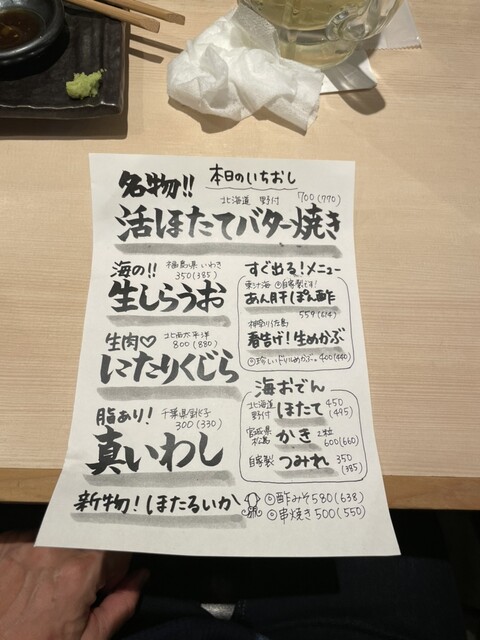 本日のいちおし
名物!!
北海道 野付
700(770)
活ほたてバター焼き
海の!!
福島県 いわき
350(385)
生しらうお
生肉♡
北西太平洋
800(880)
いたりくじら
脂あり!
千葉県銚子
300(330)
真いわし
新物!ほたるいか
酢みそ580(638)
串焼き500(550)
すぐ出る!メニュー
自家製です!
あん肝ぽん酢
559(614)
神奈川佐島
春告げ!生めかぶ
400(440)
海おでん
北海道
野付
ほたて
450
(495)
宮城県
松島
かき
2粒
600(660)
自家製
つみれ
350
(385)